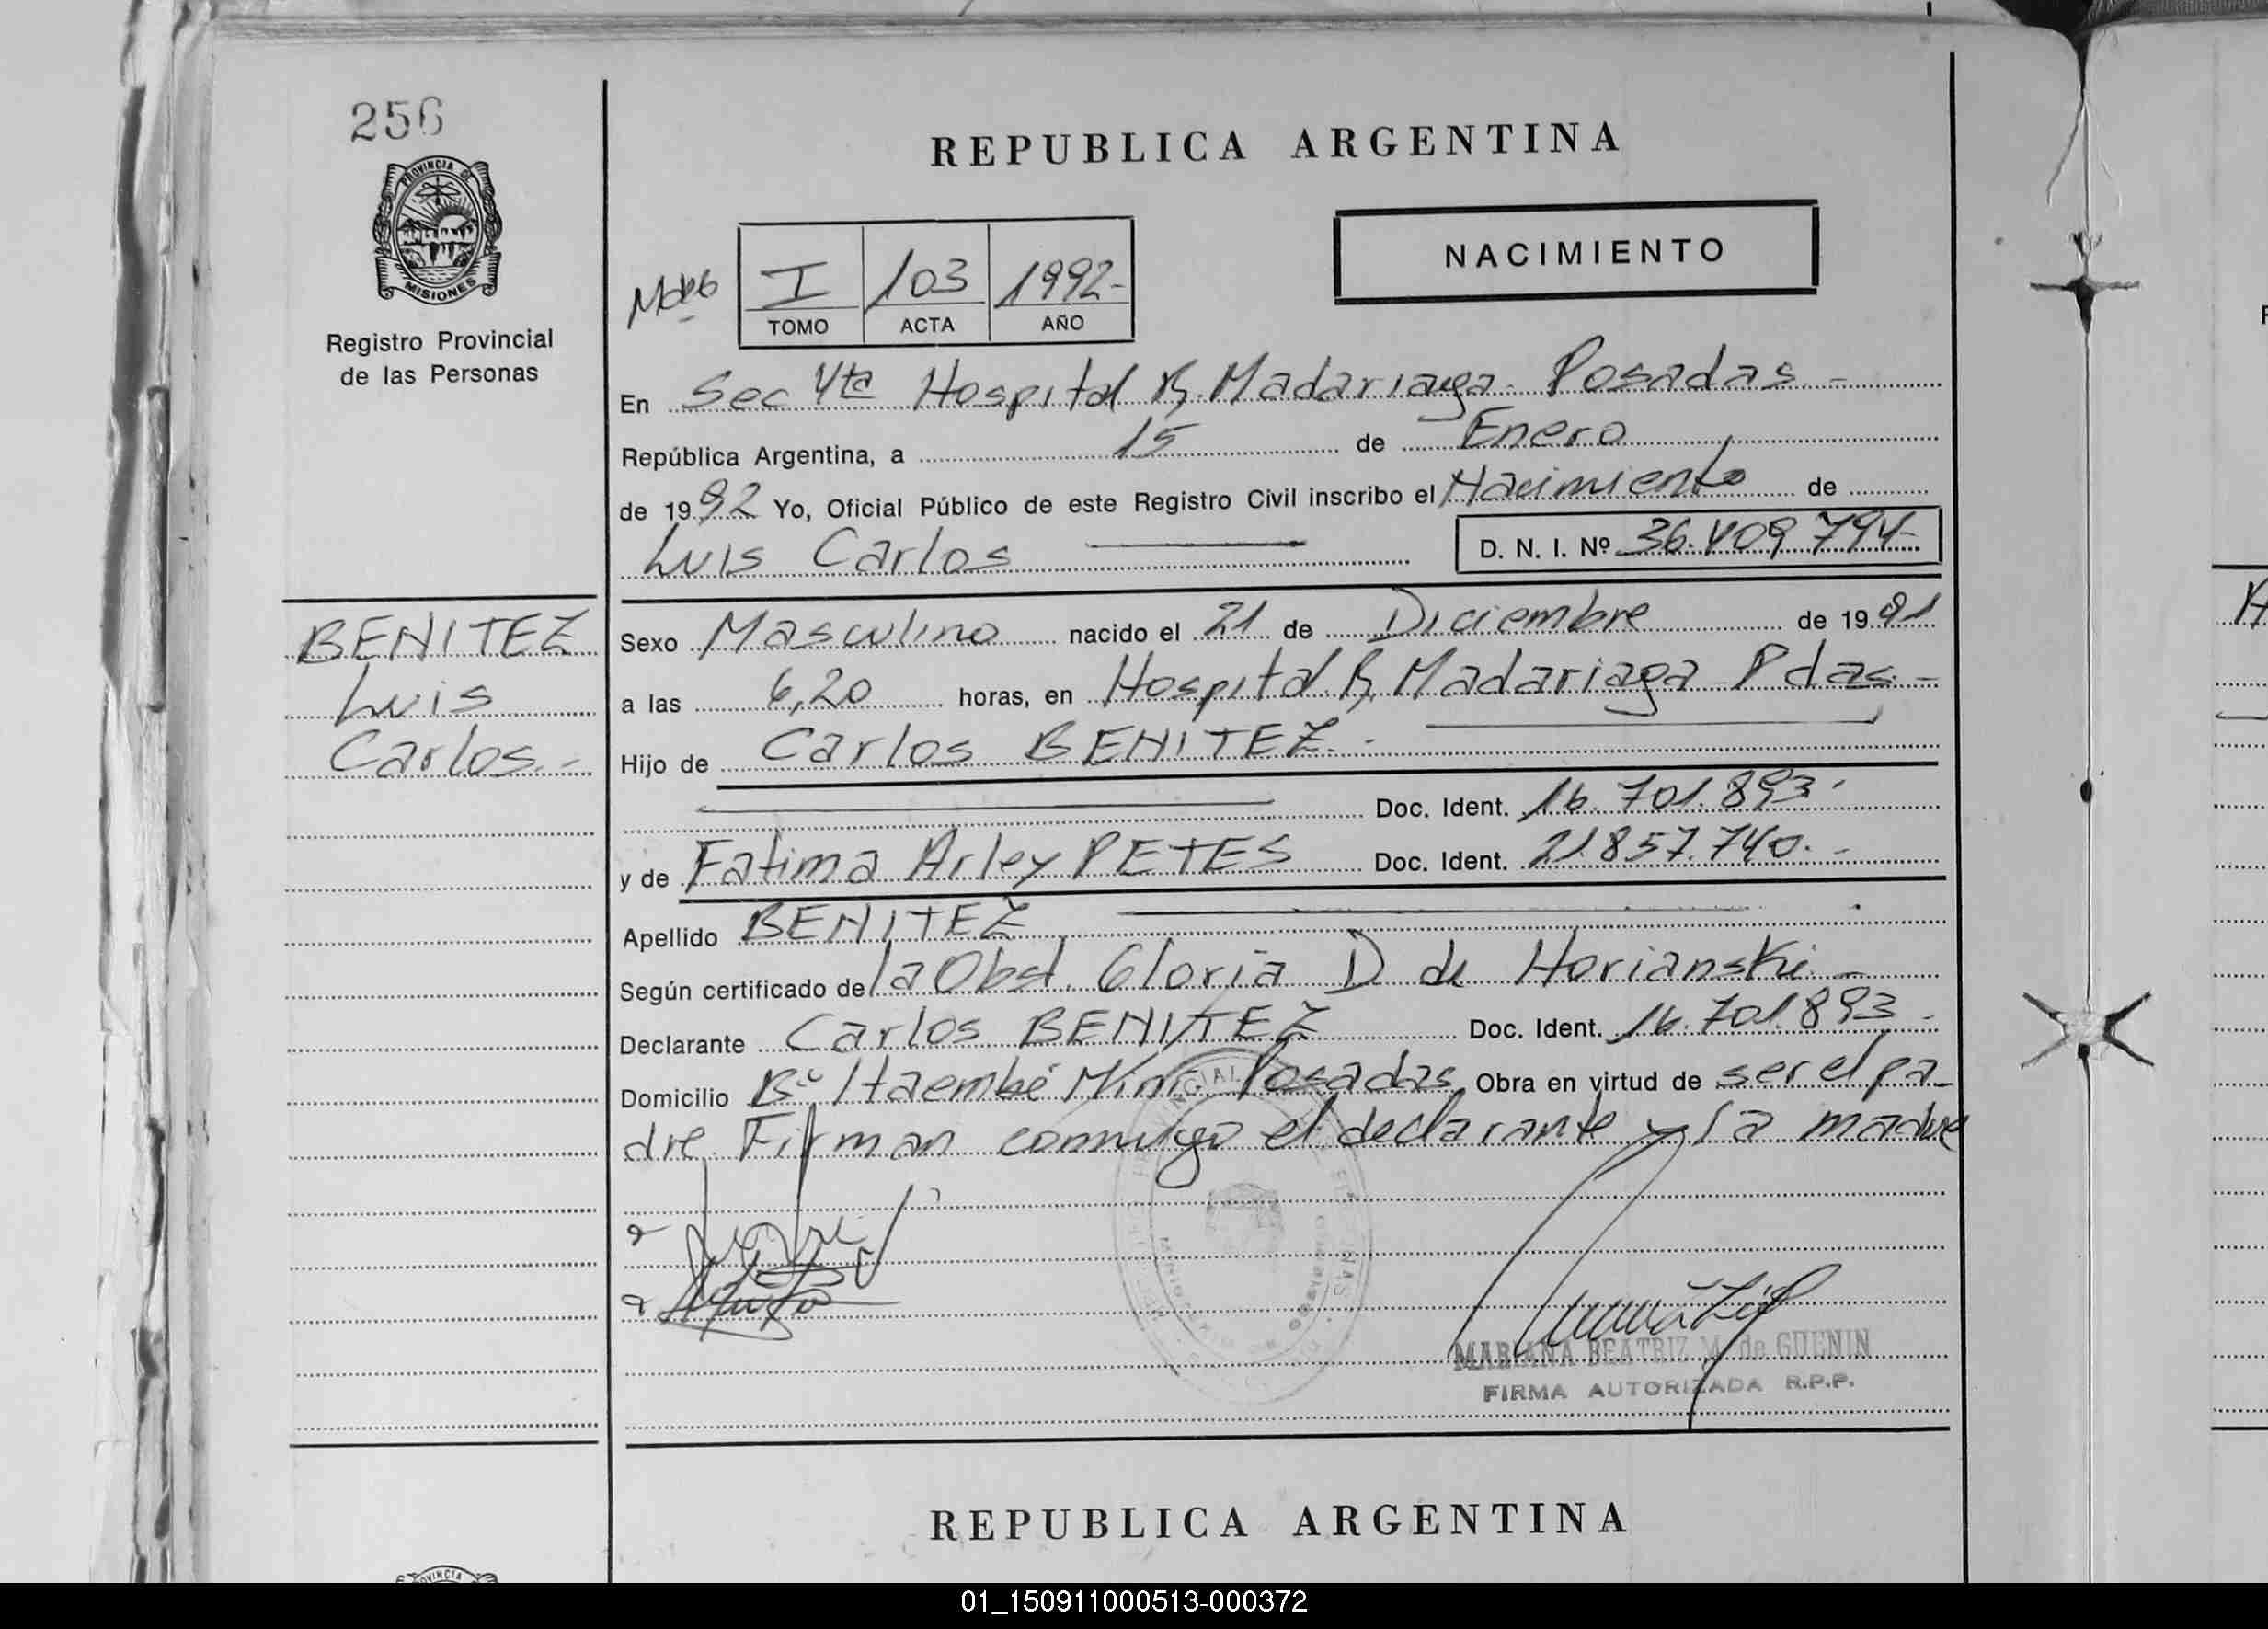 256
PROVINCIA DE
MISIONES
Registro Provincial
de las Personas
BENITEZ
Luis
Carlos.-
REPUBLICA ARGENTINA
NACIMIENTO
I 103 1992-
TOMO ACTA AÑO
En Sec 4ta Hospital R. Madariaga. Posadas.-
República Argentina, a 15 de Enero
de 1992 Yo, Oficial Público de este Registro Civil inscribo el Nacimiento de
Luis Carlos D. N. I. Nº 36.409.794-
Sexo Masculino nacido el 21 de Diciembre de 1991
a las 6,20 horas, en Hospital R. Madariaga Pdas.-
Hijo de Carlos BENITEZ.-
Doc. Ident. 16.701.893.
y de Fatima Arley PETES Doc. Ident. 21.857.740.-
Apellido BENITEZ
Según certificado de la Obst. Gloria D de Horianski.-
Declarante Carlos BENITEZ Doc. Ident. 16.701.893.
Domicilio Bº Itaembé Mini. Posadas. Obra en virtud de ser el pa-
dre. Firman conmigo el declarante y la madre
MARIANA BEATRIZ M. de GUENIN
FIRMA AUTORIZADA R.P.P.
REPUBLICA ARGENTINA
01_150911000513-000372